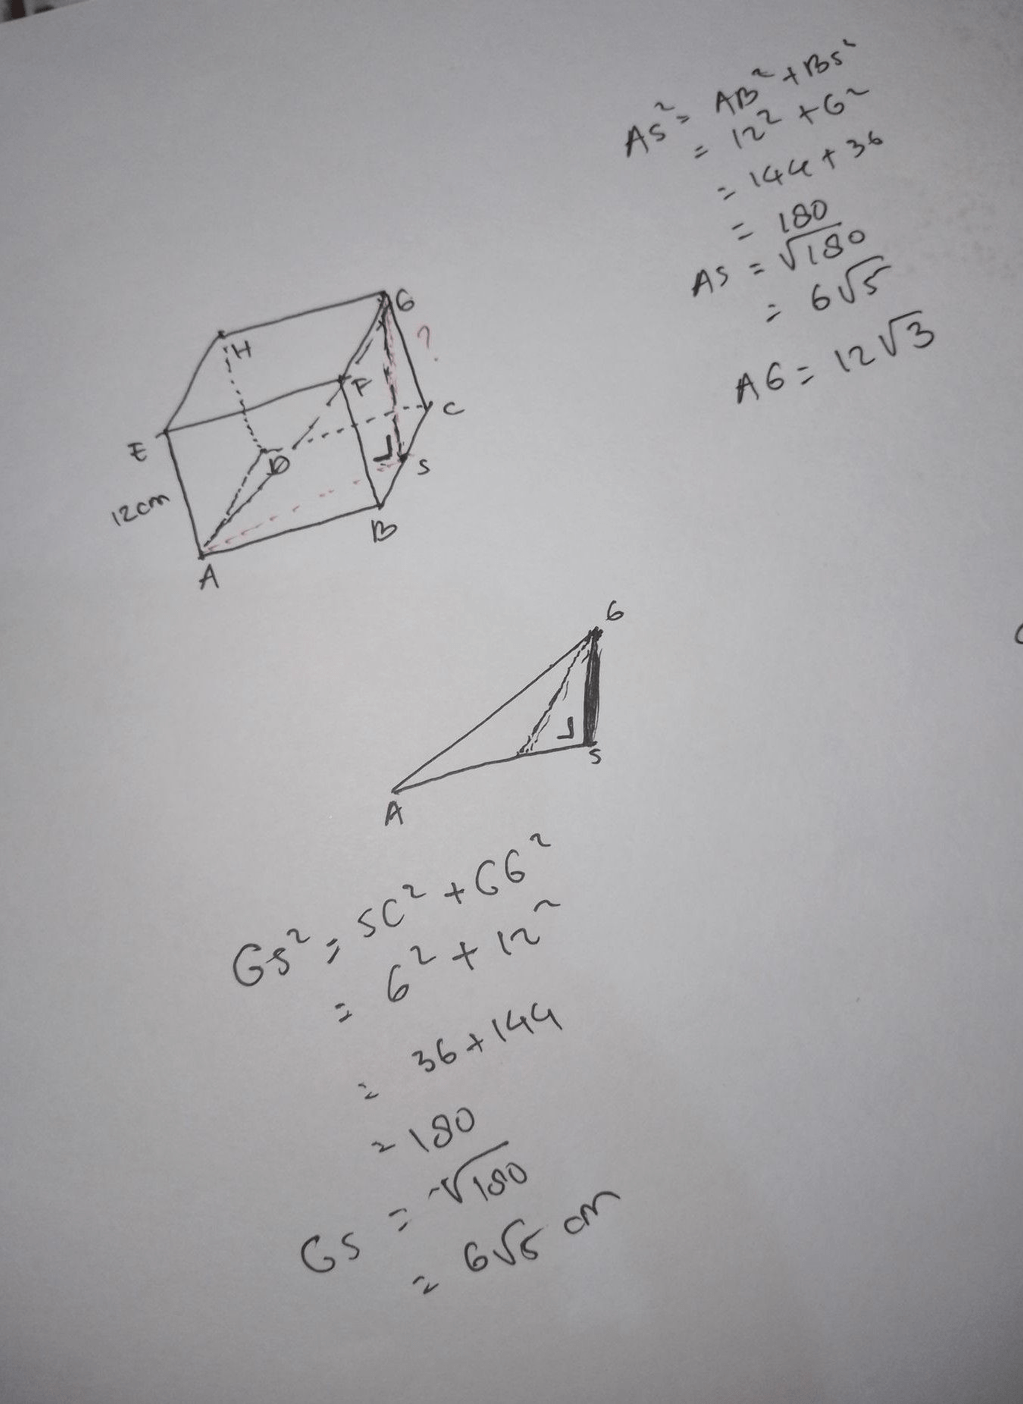 AS² = AB² + BS²
= 12² + 6²
= 144 + 36
= 180
AS = √180
= 6√5
AG = 12√3
G
?
H
F
C
E
D
S
12cm
B
A
G
S
A
GS² = SC² + CG²
= 6² + 12²
= 36 + 144
= 180
GS = √180
= 6√5 cm